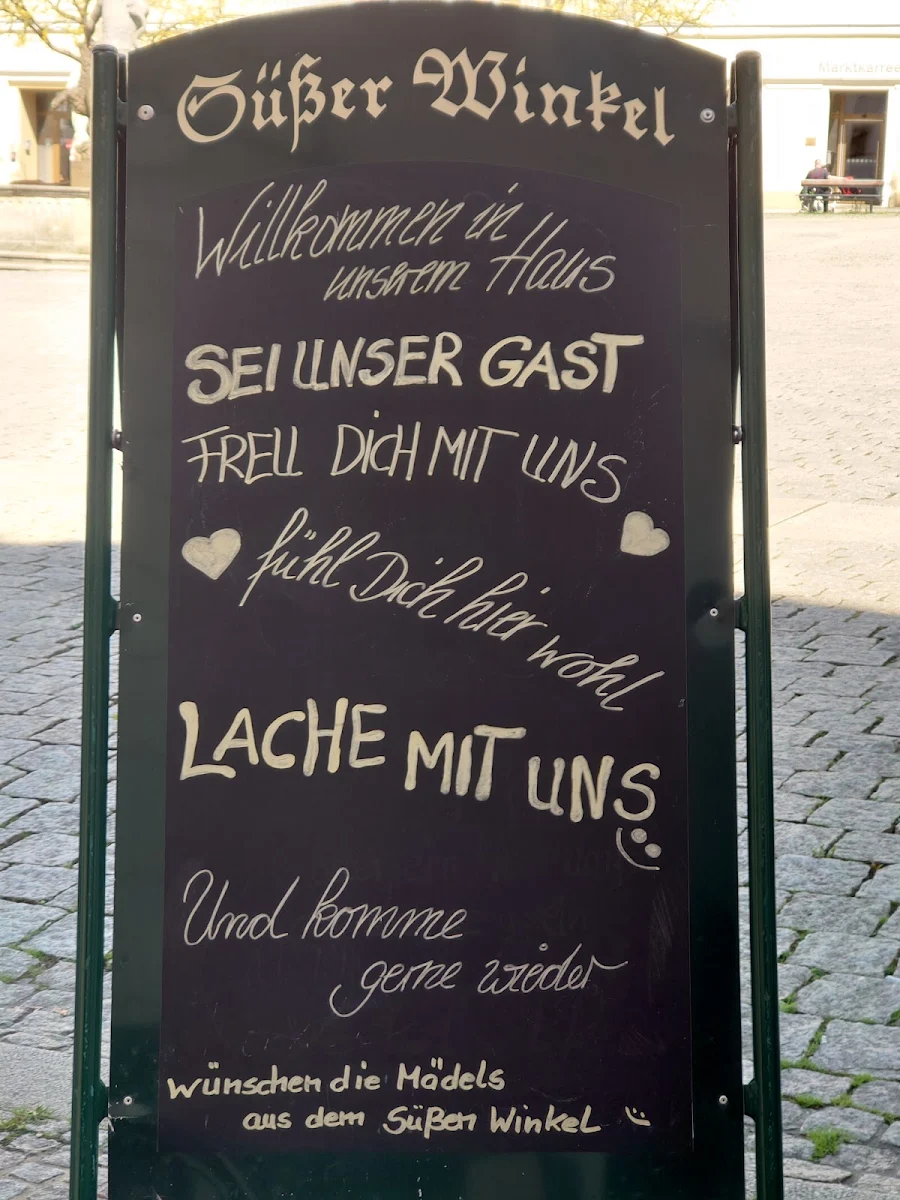 Marktkarree
Süßer Winkel
Willkommen in
unserem Haus
SEI UNSER GAST
FREU DiCH MIT UNS
fühl Dich hier wohl
LACHE MIT UNS
Und komme
gerne wieder
wünschen die Mädels
aus dem Süßen Winkel